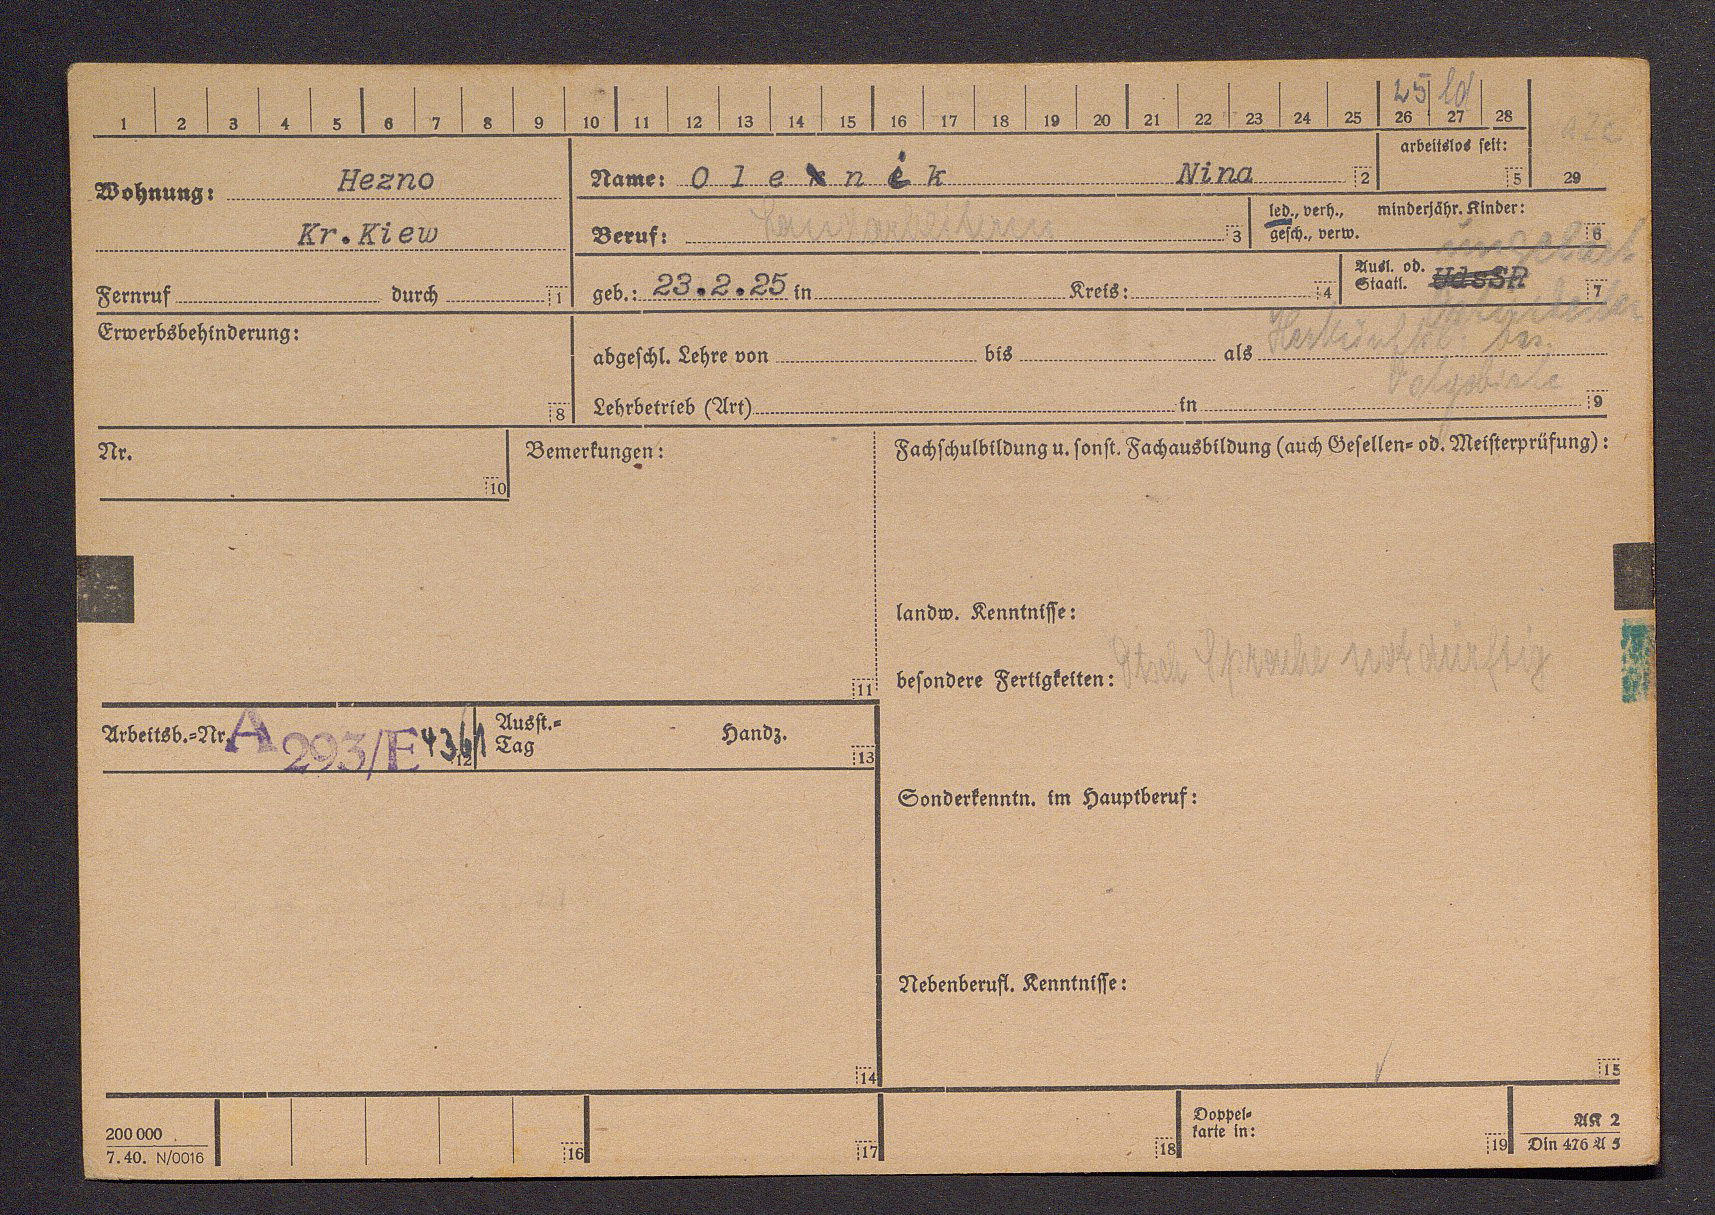 25 ld
1 2 3 4 5 6 7 8 9 10 11 12 13 14 15 16 17 18 19 20 21 22 23 24 25 26 27 28
arbeitslos seit:
5 29
Wohnung: Hezno
Kr.Kiew
Name: O l e x n i k Nina 2
Beruf: Landarbeiterin 3
led., verh., minderjähr. Kinder:
gesch., verw. 6
Fernruf durch 1
geb.: 23.2.25 in Kreis: 4
Ausl. od. Staatl. UdSSR 7
ungeklärt
Erwerbsbehinderung:
8
abgeschl. Lehre von bis als
Lehrbetrieb (Art) in 9
Nr.
10
Bemerkungen:
11
Fachschulbildung u. sonst. Fachausbildung (auch Gesellen- od. Meisterprüfung):
landw. Kenntnisse:
besondere Fertigkeiten: Dtsch Sprache notdürftig
Arbeitsb.-Nr. A 293/E 436/1 12
Ausst.-
Tag
Handz.
13
Sonderkenntn. im Hauptberuf:
Nebenberufl. Kenntnisse:
14
15
200 000
7.40. N/0016
16
17
18
Doppel-
karte in:
19
AK 2
Din 476 A 5